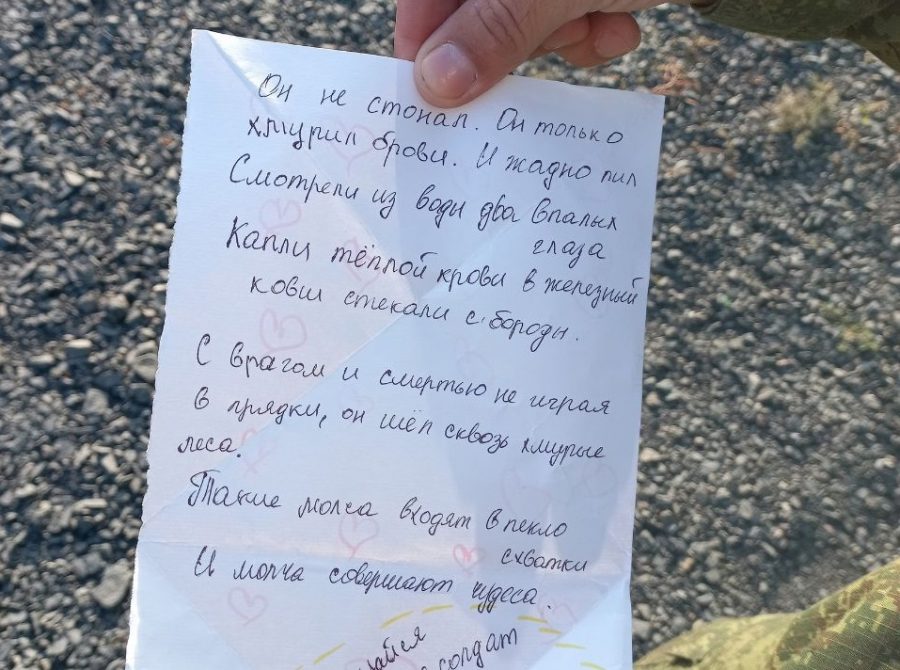 Он не стонал. Он только
хмурил брови. И жадно пил
Смотрели из воды два впалых
глаза
Капли тёплой крови в железный
ковш стекали с бороды.
С врагом и смертью не играя
в прядки, он шёл сквозь хмурые
леса.
Такие молча входят в пекло
схватки
И молча совершают чудеса.
солдат